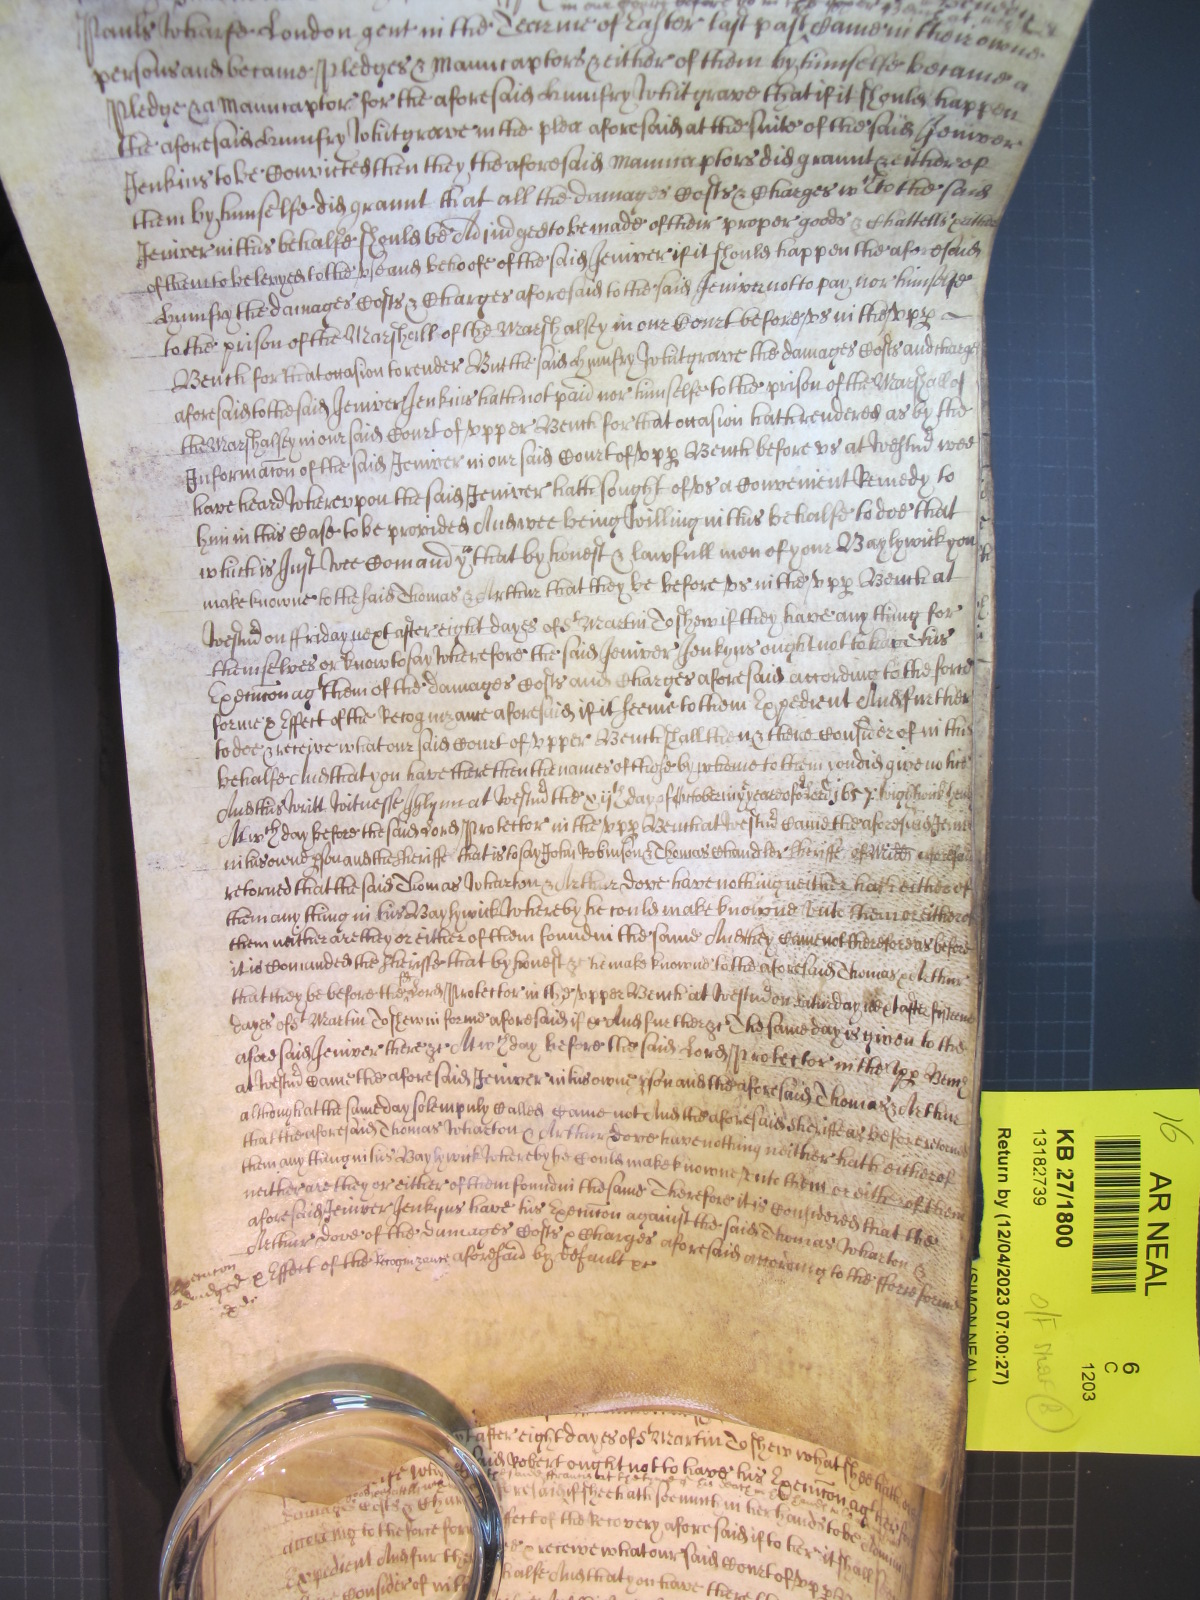 Pauls Wharfe London gent in the Tearme of Easter last past Came in their owne
persons and became Pledges & Manucaptors & either of them by himselfe became a
Pledge & a Manucaptor for the aforesaid Humfry Whitgrave that if it should happen
the aforesaid Humfry Whitgrave in the plea aforesaid at the suite of the said Jeniver
Jenkins to be Convicted then they the aforesaid manucaptors did graunt & either of
them by himselfe did graunt that all the damages Costs & Charges wch to the said
Jeniver in this behalfe should be Adiudged to be made of their proper goods & Chattells & either
of them to be levyed to the vse and behoofe of the said Jeniver if it should happen the aforesaid
Humfry the damages Costs & Charges aforesaid to the said Jeniver not to pay nor himselfe
to the prison of the Marshall of the Marshalsey in our Court before vs in the vpp
Bench for that occasion to render But the said Humfry Whitgrave the damages Costs and charges
aforesaid to the said Jeniver Jenkins hath not paid nor himselfe to the prison of the Marshall of
the Marshalsey in our said Court of vpper Bench for that occasion hath rendered as by the
Informacon of the said Jeniver in our said Court of vpp Bench before vs at Westmr wee
have heard Wherevpon the said Jeniver hath sought of vs a Convenient Remedy to
him in this Case to be provided And wee being willing in this behalfe to doe that
which is Just Wee Comand you that by honest & lawfull men of your Baylywick you
make knowne to the said Thomas & Arthur that they be before vs in the vpp Bench at
Westmr on ffriday next after eight dayes of St Martin To shew if they have any thing for
themselves or know to say wherefore the said Jeniver Jenkyns ought not to have his
Execucon agt them of the damages Costs and Charges aforesaid according to the force
forme & Effect of the Recognizance aforesaid if it seeme to them Expedient And further
to doe & receive what our said Court of vpper Bench shall then & there Consider of in this
behalfe And that you have there then the names of those by whome to them you did give notice
And this writt Witnesse Glynn at Westmr the xijth day of October in ye yeare of or Lord 1657
At wch day before the said Lord Protector in the vpp Bench at Westmr Came the aforesaid Jeniver
in his owne pson and the Sheriffe that is to say John Robinson & Thomas Chandler Sheriffe of Midd aforesaid
retorned that the said Thomas Wharton & Arthur Dove have nothing neither hath either of
them any thing in his Baylywick Whereby he could make knowne vnto them or either of
them neither are they or either of them found in the same And they Came not Therefore as before
it is Comanded the Sheriffe that by honest &c he make knowne to the aforesaid Thomas & Arthur
that they be before the Lord Protector in the vpper Bench at Westmr on Saturday next after fifteene
dayes of St Martin To shew in forme aforesaid if &c And further &c The same day is given to the
aforesaid Jeniver there &c At wch day before the said Lord Protector in the vpp Bench
at Westmr Came the aforesaid Jeniver in his owne pson and the aforesaid Thomas & Arthur
although at the same day solempnly Called Came not And the aforesaid Sheriffe as before retorned
that the aforesaid Thomas Wharton & Arthur Dove have nothing neither hath either of
them any thing in his Baylywick Whereby he Could make knowne vnto them or either of them
neither are they or either of them found in the same Therefore it is Considered that the
aforesaid Jeniver Jenkyns have his Execucon against the said Thomas Wharton &
Arthur Dove of the damages Costs & Charges aforesaid according to the fforce forme
& Effect of the Recognizance aforesaid by default &c
Execucon
adiudged
&c
after eight dayes of St Martin To shew what shee hath
said Robert ought not to have his Execucon agt her
damages Costs & Char
aforesaid if shee hath soe much in her hands to be
according to the force form
Effect of the Recovery aforesaid if to her it shall
Expedient And further
& receive what our said Court of vpp
Consider of in th
behalfe And that you have there
16
AR NEAL
6
C
1203
KB 27/1800
13182739
Return by (12/04/2023 07:00:27)
(SIMON NEAL)